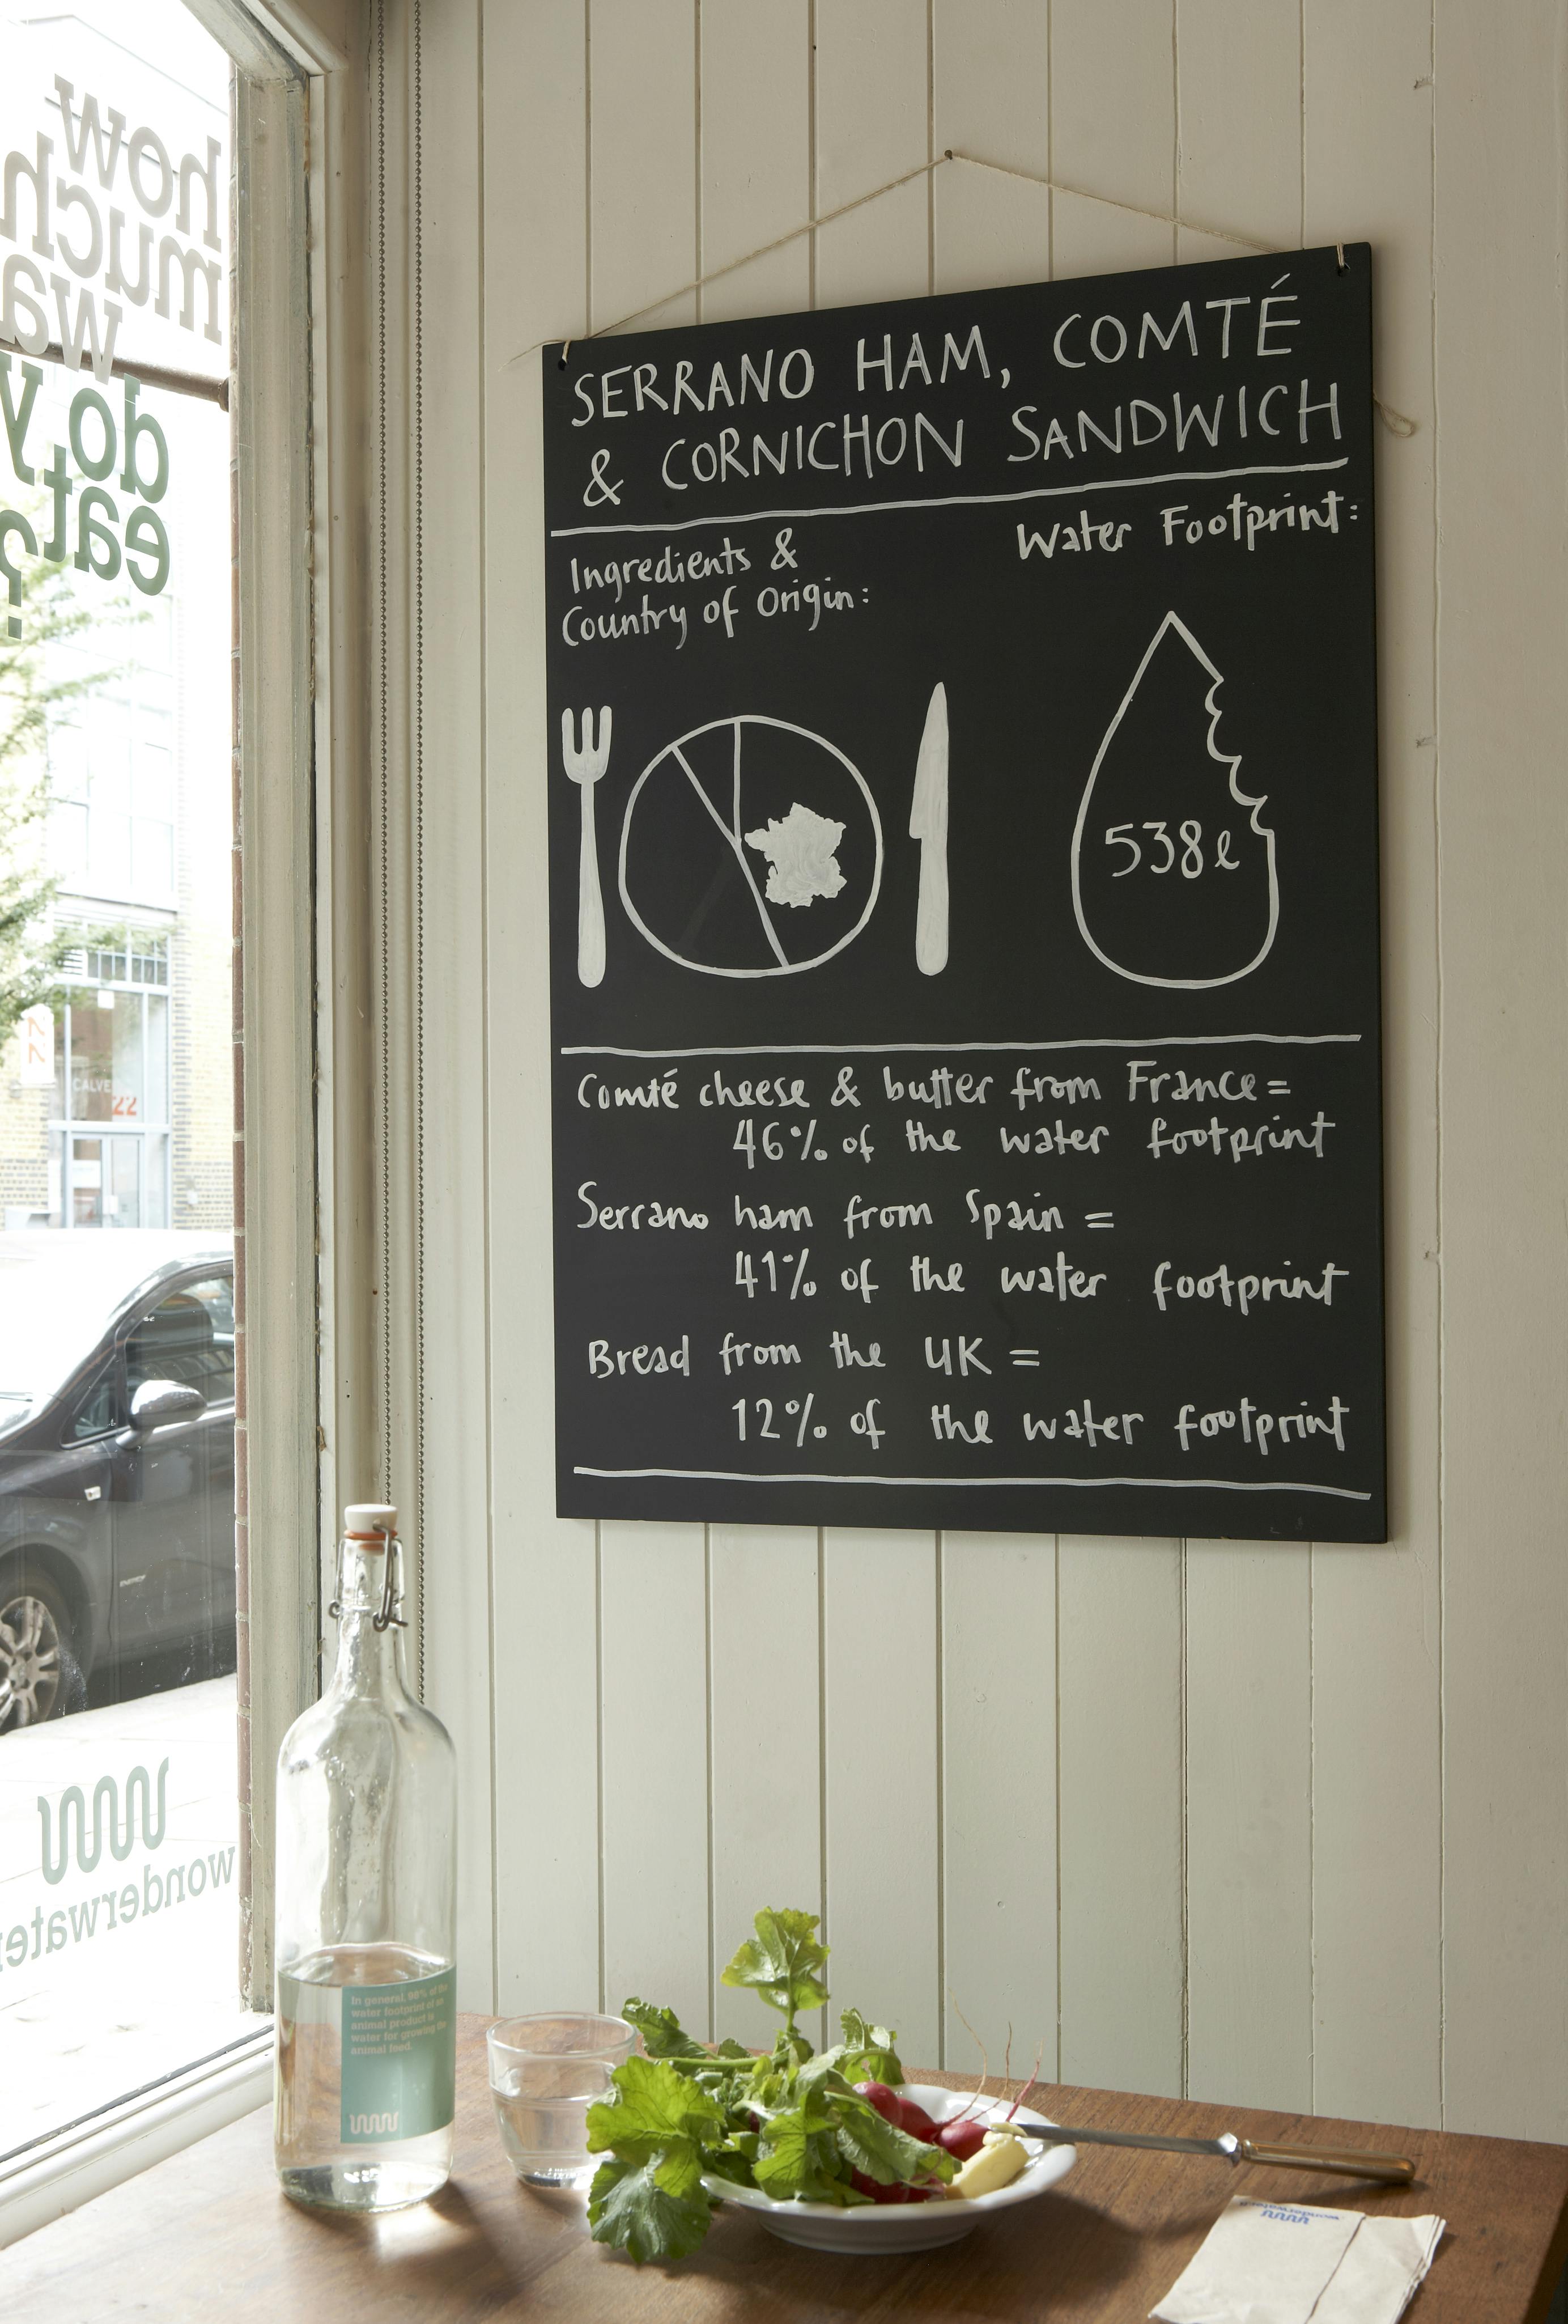 how
much
wa
do y
eat
?
SERRANO HAM, COMTÉ
& CORNICHON SANDWICH
Ingredients &
Country of Origin:
Water Footprint:
538l
Comté cheese & butter from France =
46% of the water footprint
Serrano ham from Spain =
41% of the water footprint
Bread from the UK =
12% of the water footprint
CALVE
22
wonderwater
In general, 98% of the
water footprint of an
animal product is
water for growing the
animal feed.
wonderwater